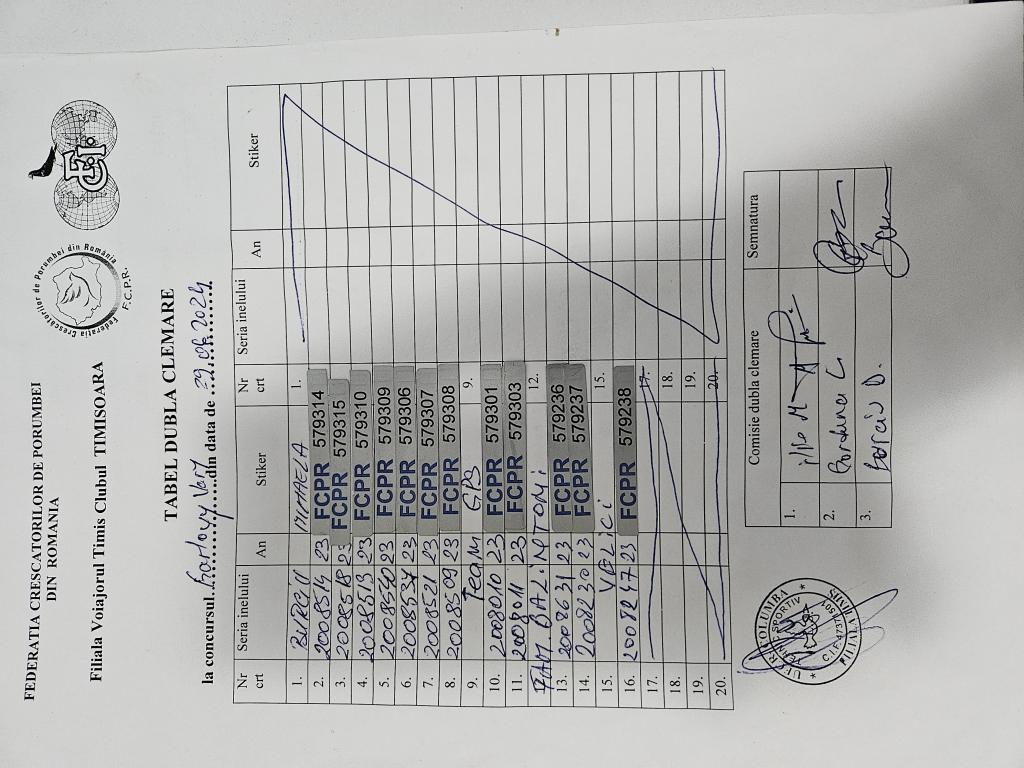 FEDERATIA CRESCATORILOR DE PORUMBEI
DIN ROMANIA
Filiala Voiajorul Timis Clubul TIMISOARA
Federatia Crescatorilor de Porumbei din România
F.C.P.R.
F.C.I.
TABEL DUBLA CLEMARE
la concursul din data de 29.06.2024
Nr crt Seria inelului An Stiker Nr crt Seria inelului An Stiker
1. BURCIU MIHAELA 1.
2. 2008514 23 FCPR 579314
3. 2008518 23 FCPR 579315
4. 2008513 23 FCPR 579310
5. 23 FCPR 579309
6. 2008537 23 FCPR 579306
7. 2008521 23 FCPR 579307
8. 2008509 23 FCPR 579308
9. TEAM GPS 9.
10. 2008010 23 FCPR 579301
11. 2008011 23 FCPR 579303
FAM. BALINT TOMI 12.
13. 2008631 23 FCPR 579236
14. 2008230 23 FCPR 579237
15. VELICI 15.
16. 2008247 23 FCPR 579238
17. 17.
18. 18.
19. 19.
20. 20.
Comisie dubla clemare Semnatura
1.
2.
3.
COLUMBA
SPORTIV
C.I.F.
FILIALA TIMIS